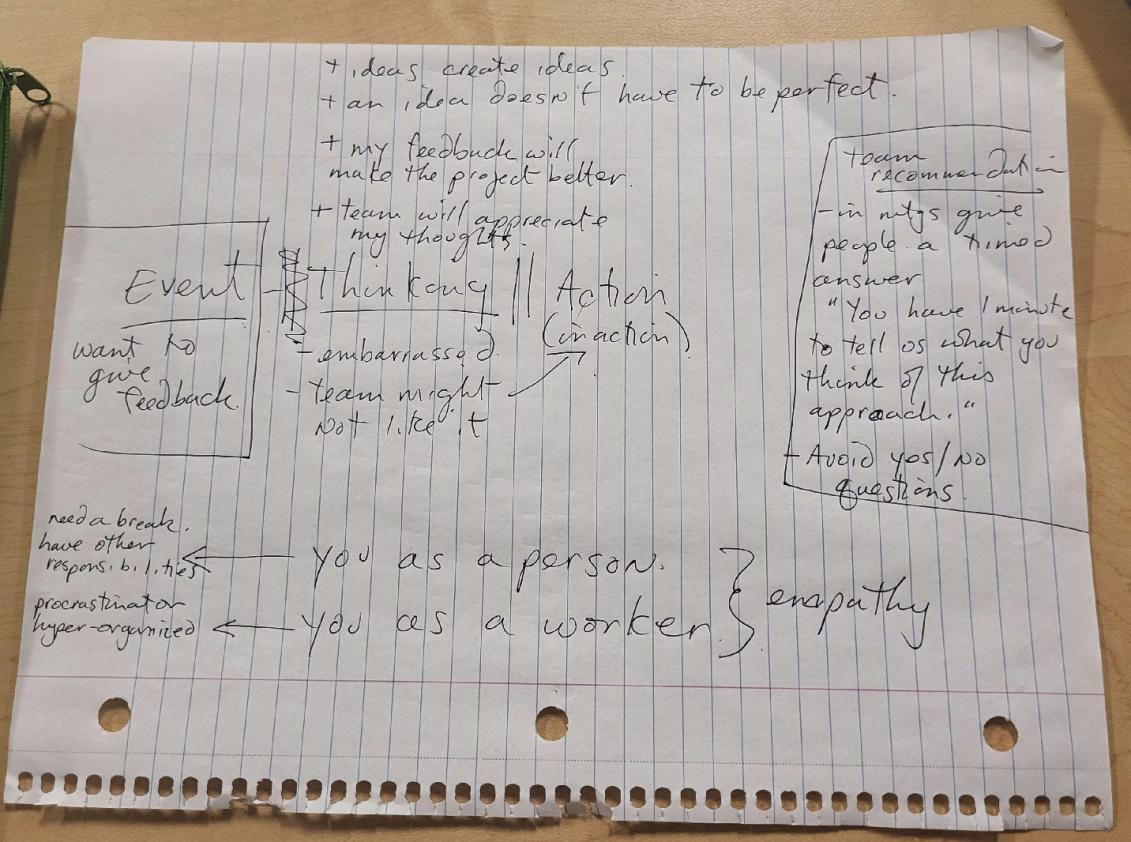 + ideas create ideas
+ an idea doesn't have to be perfect.
+ my feedback will
make the project better.
+ team will appreciate
my thoughts.
Event
want to
give
feedback.
Thinking || Action
(inaction)
- embarrassed.
- team might
not like it
team
recommendation
- in mtgs give
people a timed
answer
"You have 1 minute
to tell us what you
think of this
approach."
- Avoid yes/no
questions.
need a break.
have other
responsibilities
you as a person.
procrastinator
hyper-organized
you as a worker
empathy